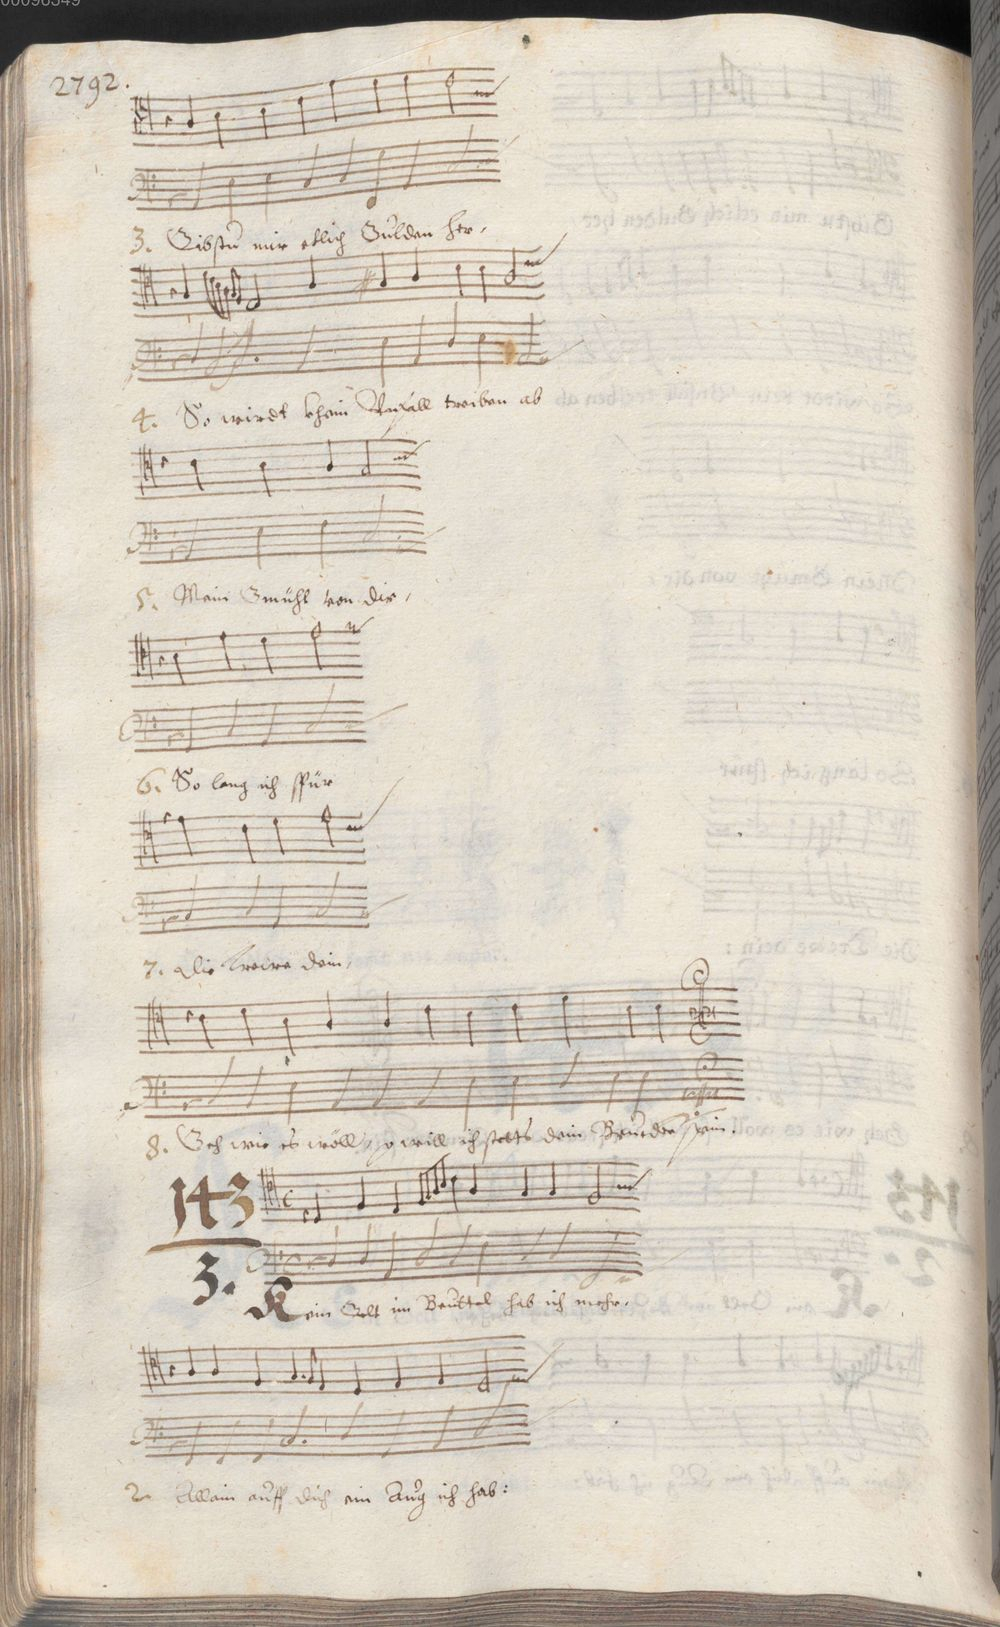 00098349
2792.
3. Gibstu mir etlich Gulden her,
4. So wirdt khain Unfall treiben ab
5. Mein Gmüht von dir,
6. So lang ich spür
7. Die Trewe dein,
8. Geh wie es wöll, so will ich stetts dein Bruder sein.
143
3. Kein Gelt im Beuttel hab ich mehr,
2. Allain auff dich ein Aug ich hab: